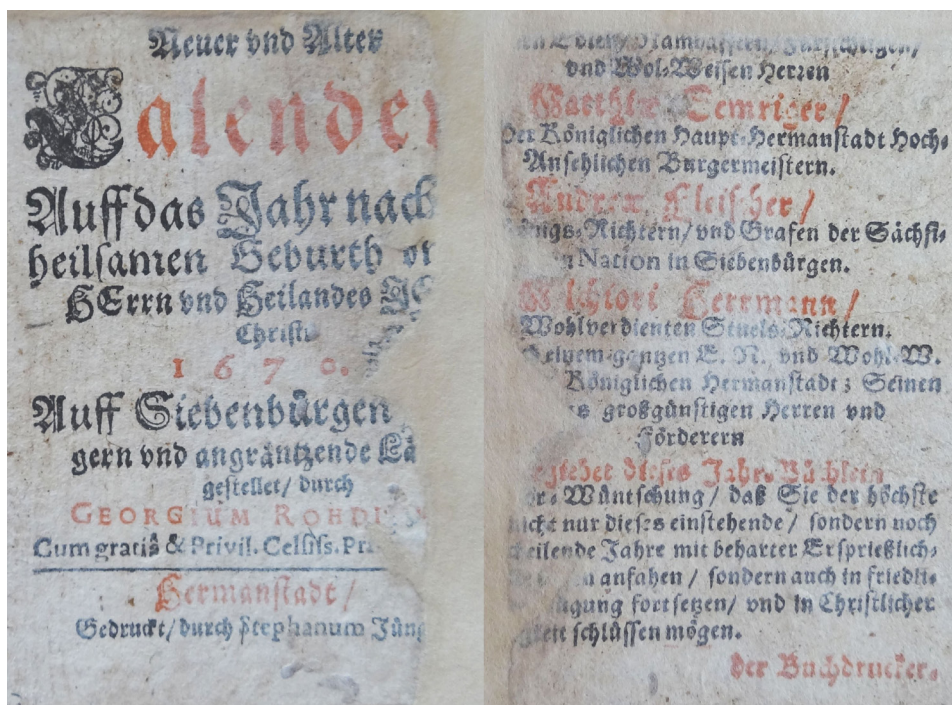 Neuer vnd Alter
Calender
Auff das Jahr nach
heilsamen Geburth
HErrn vnd Heilandes
Christi
1670.
Auff Siebenbürgen
gern vnd angräntzende
gestellet/ durch
GEORGIUM
Cum gratiâ & Privil. Celsiss.
Hermanstadt/
Gedruckt/ durch Stephanum
vnd Wol-Weisen Herren
Semriger/
Der Königlichen Haupt-Hermanstadt Hoch-
Ansehlichen Burgermeistern.
Andreæ Fleischer/
Richtern/ vnd Grafen der Sächsi-
Nation in Siebenbürgen.
Herrmann/
Wohlverdienten Stuels-Richtern.
gantzen E. N. vnd Wohl-W.
Königlichen Hermanstadt; Seinen
großgünstigen Herren vnd
Förderern
dieses Jahr-Büchlein
Wüntschung/ daß Sie der höchste
nicht nur dieses einstehende/ sondern noch
Jahre mit beharter Ersprießlich-
anfahen/ sondern auch in friedli-
fortsetzen/ vnd in Christlicher
schlüssen mögen.
der Buchdrucker.